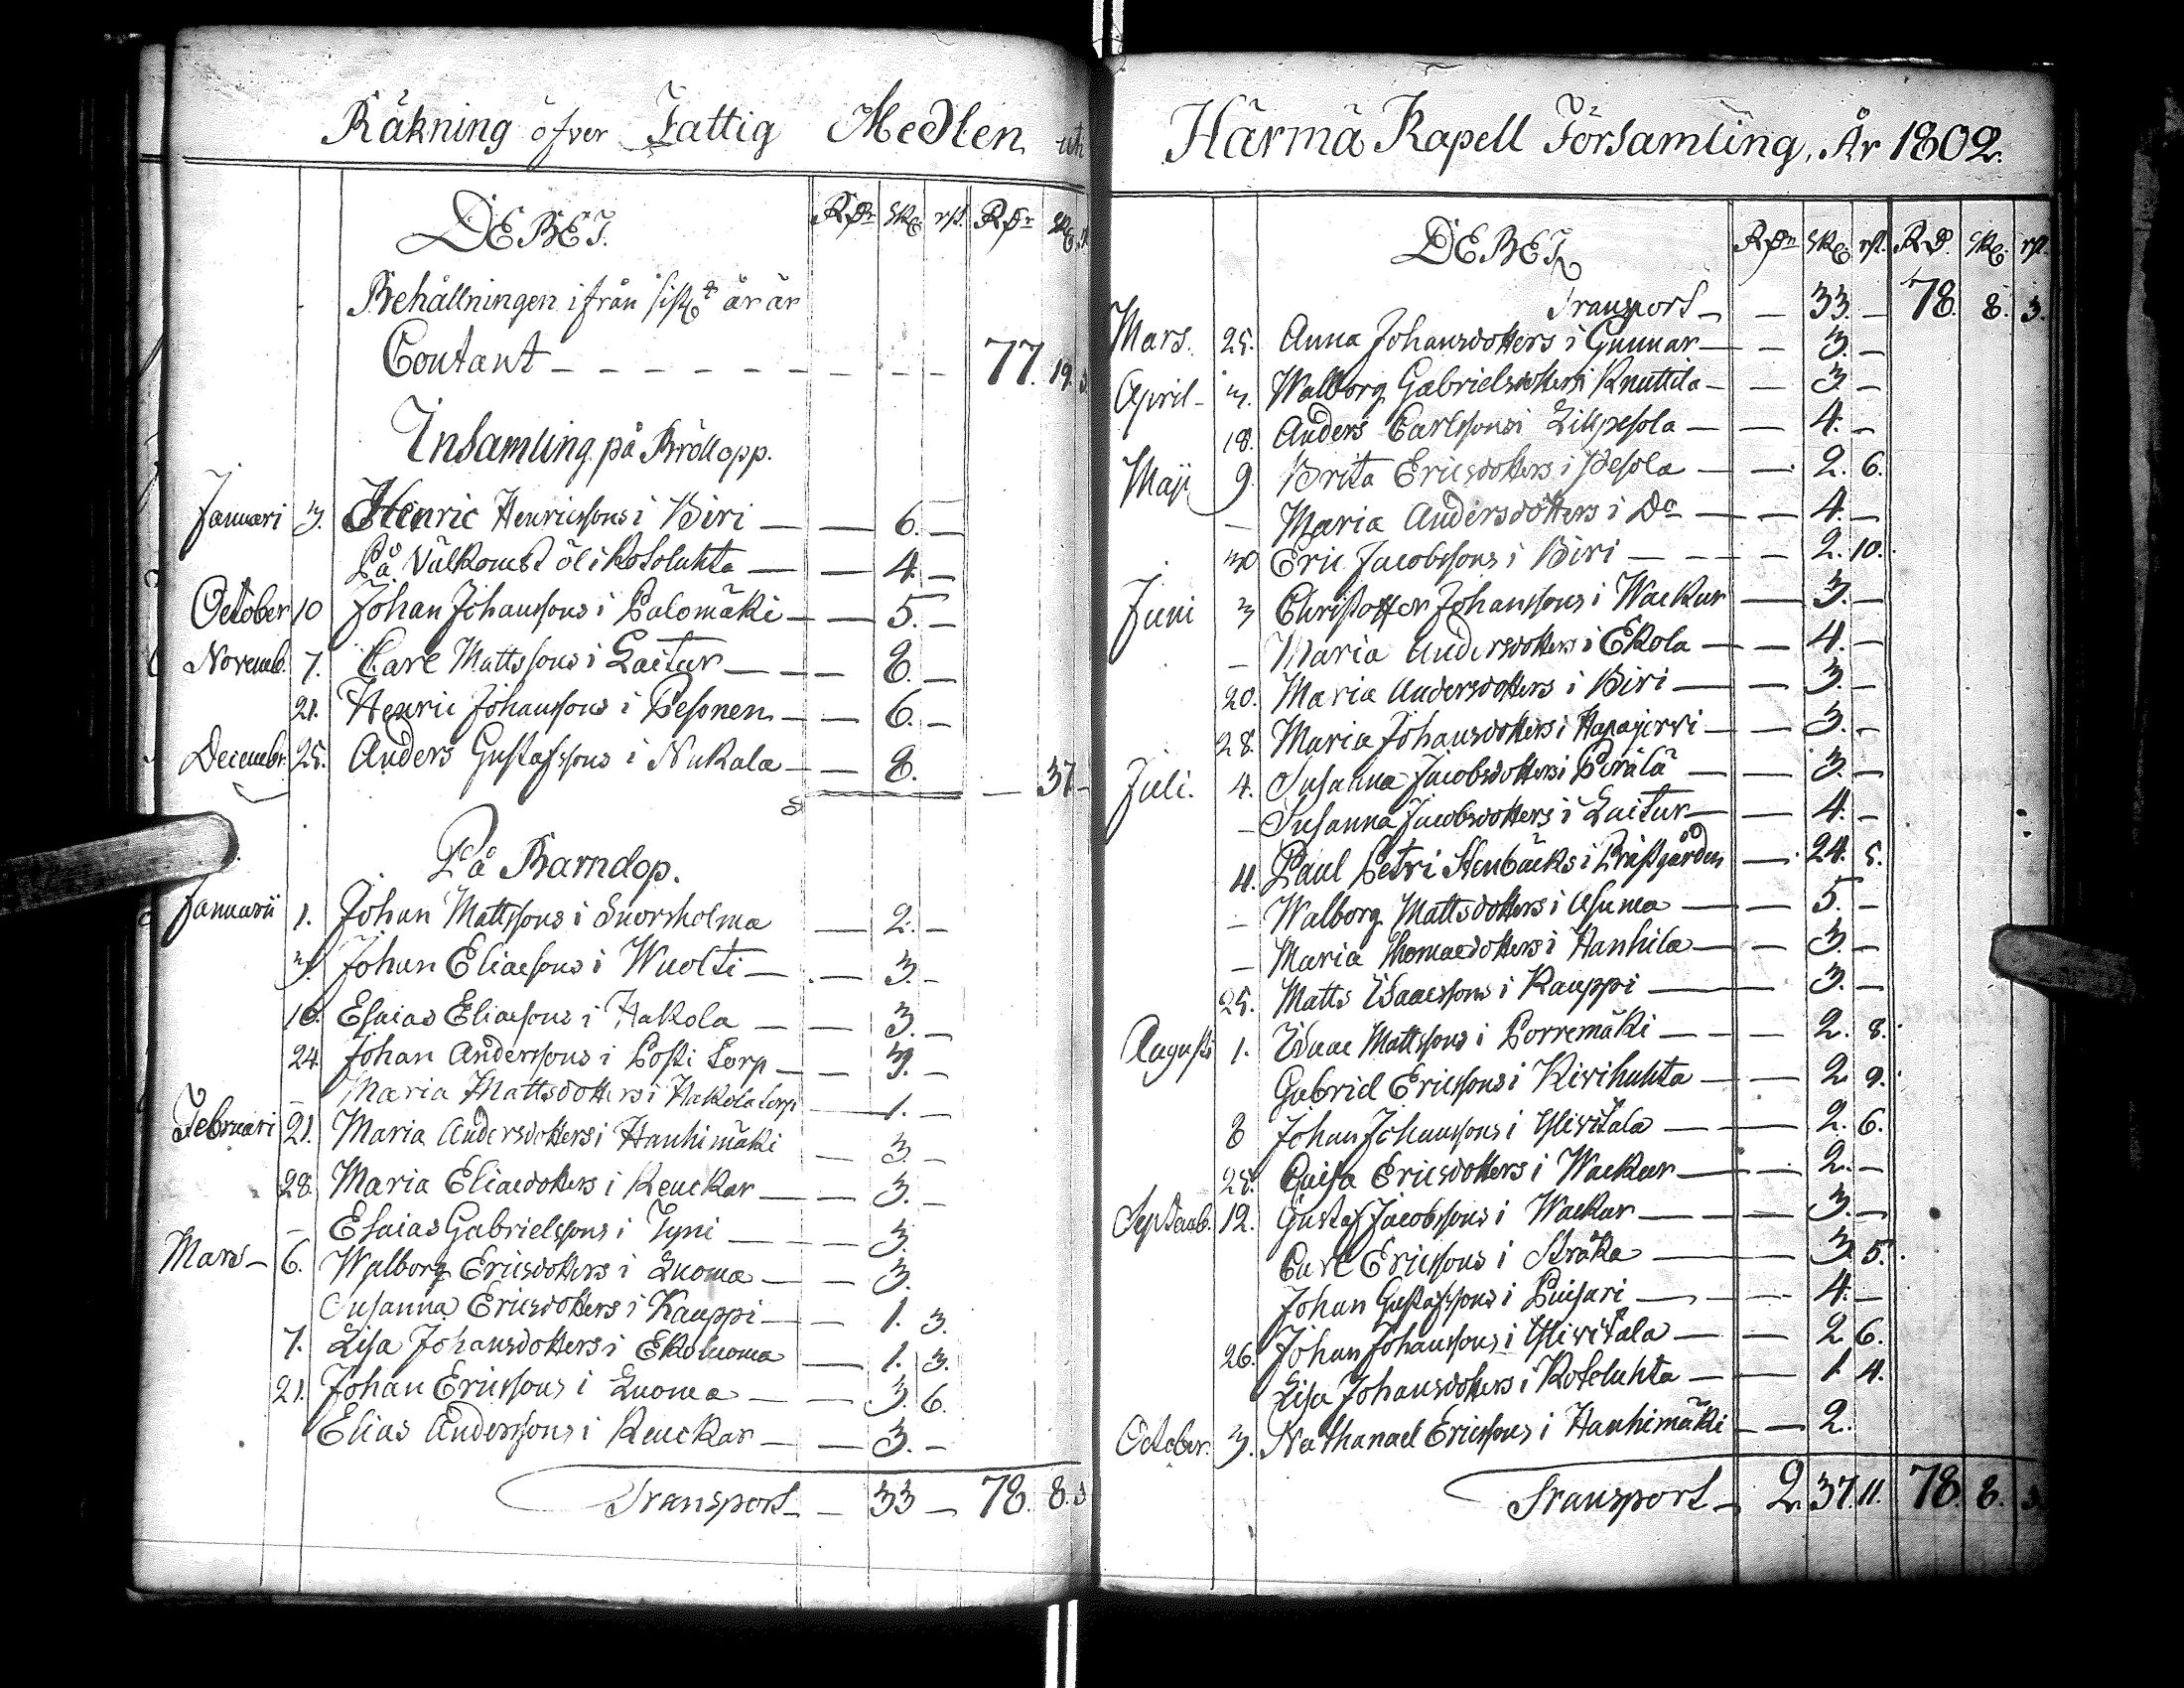 Räkning öfver Fattig Medlen uti
DEBET. Rdr sk. rst. Rdr sk. r.
Behållningen ifrån sist. år är
Contant — 77. 19. 3
Insamling på Bröllopp.
Januari 3. Henric Henricssons i Biri — 6. —
På Välkomst öl i Kosoluhta — 4. —
October 10 Johan Johanssons i Palomäki — 5. —
Novemb. 7. Carl Mattssons i Laitur — 8. —
21. Henric Johanssons i Pesonen — 6. —
Decembr. 25. Anders Gustafssons i Nukala — 8. — 37 —
På Barndop.
Januarii 1. Johan Mattssons i Snorsholma — 2. —
3. Johan Eliaesons i Wuolti — 3. —
10. Esaias Eliaesons i Hakola — 3. —
24. Johan Anderssons i Posti Torp — 3. —
— Maria Mattsdotters i Hakola torp — 1. —
Februari 21. Maria Andersdotters i Hanhimäki — 3 —
28. Maria Eliaedotters i Renckar — 3. —
— Esaias Gabrielssons i Tyni — 3.
Mars — 6. Walborg Ericsdotters i Luoma — 3.
Susanna Ericsdotters i Kauppi — 1. 3.
7. Lisa Johansdotters i Ekoluoma — 1. 3.
21. Johan Ericssons i Luoma — 3. 6.
Elias Anderssons i Renckar — 3. —
Transport — 33 — 78. 8. 3
Härmä Kapell Församling, År 1802.
DEBET Rdr sk. rst. Rd. sk. rst.
Transport — 33. — 78. 8. 3.
Mars. 25. Anna Johansdotters i Gunnar — 3. —
April — 3. Walborg Gabrielsdotters i Knuttila — 3 —
18. Anders Carlssons i Lillpesola — 4. —
Maji 9. Brita Ericsdotters i Pesola — 2. 6.
— Maria Andersdotters i Do — 4. —
30 Eric Jacobssons i Biri — 2. 10.
Juni 3 Christoffer Johanssons i Wackur — 3. —
— Maria Andersdotters i Ekola — 4. —
20. Maria Andersdotters i Biri — 3. —
28. Maria Johansdotters i Hapajervi — 3. —
Juli. 4. Susanna Jacobsdotters i Pörälä — 3. —
— Susanna Jacobsdotters i Laitur — 4. —
11. Paul Petri Stenbäcks i Prästgården — 24. 5.
— Walborg Mattsdotters i Asuma — 5. —
— Maria Thomaedotters i Hanhila — 3. —
25. Matts Isaacssons i Kauppi — 3. —
Augusti 1. Isaac Mattssons i Porremäki — 2. 8.
Gabriel Ericssons i Kivihuhta — 2 9.
8 Johan Johanssons i Ylivitala — 2. 6.
25. Caisa Ericsdotters i Wackur — 2. —
Septemb. 12. Gustaf Jacobssons i Wackur — 3. —
Carl Ericssons i Kråka — 3 5.
Johan Gustafssons i Luisari — 4. —
26. Johan Johanssons i Ylivitala — 2 6.
Lisa Johansdotters i Kosoluhta — 1 4.
October. 3. Nathanael Ericssons i Hanhimäki — 2.
Transport — 2. 37. 11. 78. 8. 3